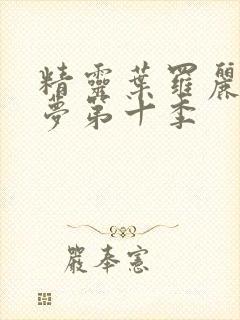 精靈葉羅麗
夢第十季
嚴奉憲